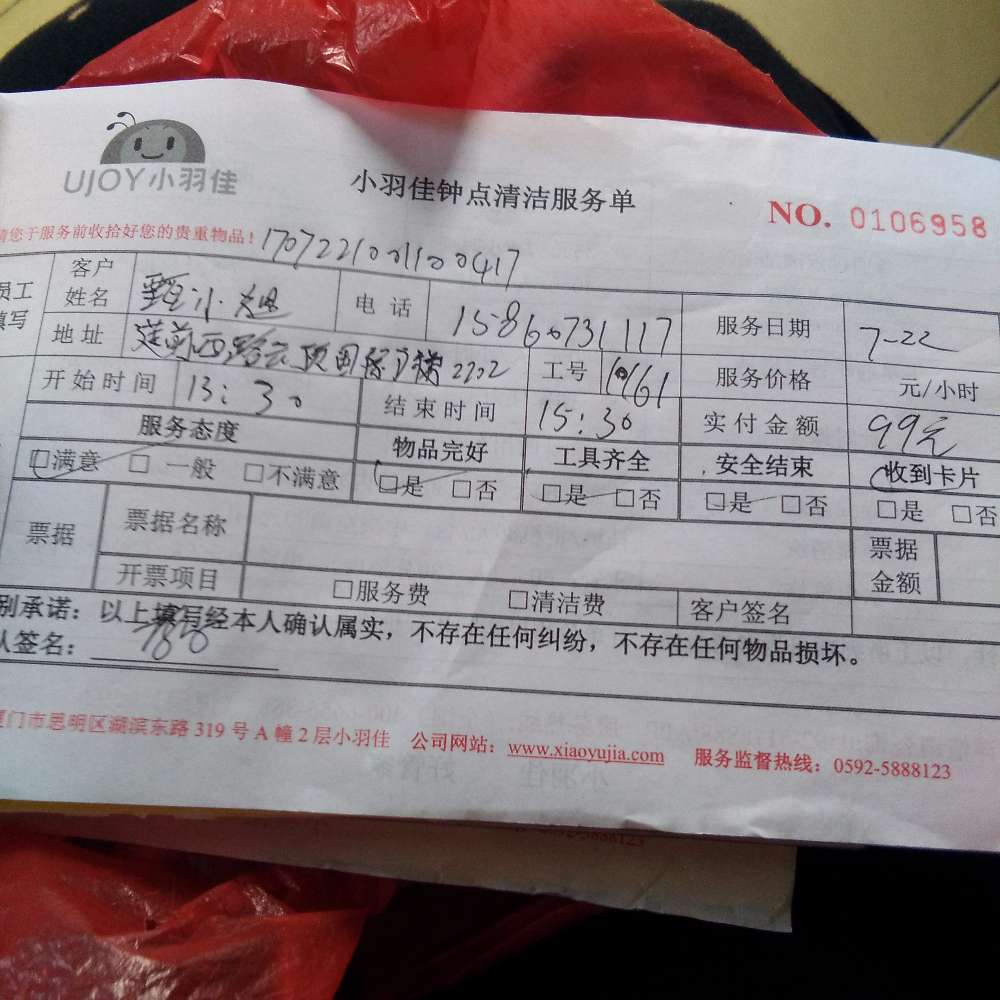 UJOY小羽佳
小羽佳钟点清洁服务单
NO. 0106958
请您于服务前收拾好您的贵重物品！1707221001100417
员工填写
客户姓名 甄小姐 电话 15860731117 服务日期 7-22
地址 莲前西路云顶国际 2202 工号 服务价格 元/小时
开始时间 13:30 结束时间 15:30 实付金额 99元
服务态度 物品完好 工具齐全 安全结束 收到卡片
□满意 □一般 □不满意 □是 □否 □是 □否 □是 □否 □是 □否
票据 票据名称 票据金额
开票项目 □服务费 □清洁费 客户签名
别承诺：以上填写经本人确认属实，不存在任何纠纷，不存在任何物品损坏。
认签名：
厦门市思明区湖滨东路 319 号 A 幢 2 层小羽佳 公司网站：www.xiaoyujia.com 服务监督热线：0592-5888123